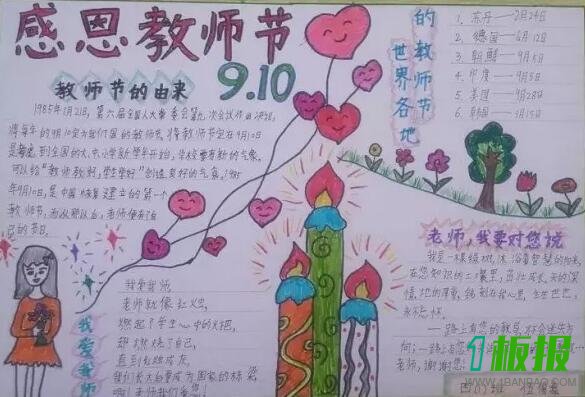 感恩教师节
9.10
教师节的由来
1985年1月21日，第六届全国人大常委会第九次会议作出决议，
将每年的9月10日定为我们国的教师节。将教师节定在9月10日
是考虑到全国的大、中小学新学年开始，学校要有新的气象。
可以给“教师教好，学生学好”创造良好的气氛。1985
年9月10日，是中国恢复建立的第一个
教师节，而从那以后，老师便有了自
己的节日。
世界各地
的教师节
2. 德国——6月12日
3. 朝鲜——9月5日
4. 印度——9月5日
5. 美国——9月28日
6. 韩国——5月15日
我爱我师
我爱我师，
老师就像红烛，
燃起了学生心中的火把，
甜燃烧了自己，
直到红烛成灰，
我们长大白要成为国家的栋梁，
啊！老师我们爱您！
老师，我要对您说
我是一棵绿树，沐浴着智慧的阳光，
在您知识的土壤里，茁壮成长。天的深
情，地的厚重，铭刻在我心里，生生世世，
永不忘怀。
一路上有您的教导，才会迷失方
向；一路上
老师，谢谢您！
四(1)班
1板报
WWW.1BANBAO.COM